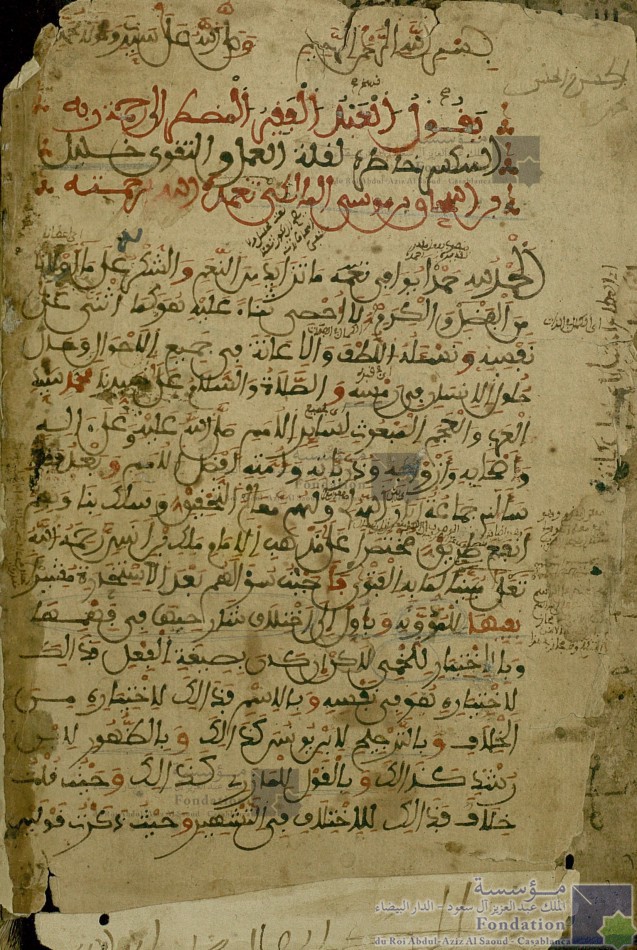 بسم الله الرحمن الرحيم وصلى الله على سيدنا ومولانا محمد
يقول العبد الفقير المضطر إلى رحمة ربه
المنكسر خاطره لقلة العمل والتقوى خليل
بن إسحاق بن موسى المالكي تغمده الله برحمته
الحمد لله حمدا يوافي نعمه ما تزايد من النعم والشكر على ما أولانا
من الفضل والكرم لا أحصي ثناء عليه هو كما أثنى على
نفسه ونسئله اللطف والاعانة في جميع الاحوال وحال
حلول الانسان في رمسه والصلاة والسلام على سيدنا محمد سيد
العرب والعجم المبعوث لسائر الامم صلى الله عليه وعلى اله
وأصحابه وأزواجه وذرياته وأمته أفضل الامم وبعد فقد
سألني جماعة أبان الله لي ولهم معالم التحقيق وسلك بنا وبهم
أنفع طريق مختصرا على مذهب الامام ملك بن انس رحمه الله
تعلى مبينا لما به الفتوى فأجبت سؤالهم بعد الاستخارة مشيرا
بفيها للمدونة وبأول إلى اختلاف شارحيها في فهمها
وبالاختيار للخمي لكن إن كان بصيغة الفعل فذالك
لاختياره هو في نفسه وبالاسم فذالك لاختياره من
الخلاف وبالترجيح لابن يونس كذالك وبالظهور لابن
رشد كذالك وبالقول للمازري كذالك وحيث قلت
خلاف فذالك للاختلاف في التشهير وحيث ذكرت قولين
مؤسسة
الملك عبد العزيز آل سعود - الدار البيضاء
Fondation
du Roi Abdul-Aziz Al Saoud - Casablanca